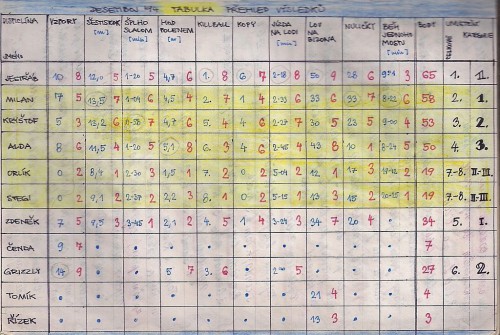 DESETIBOJ TABULKA PŘEHLED VÝSLEDKŮ
DISCIPLÍNA VZPORY ŠESTISKOK [m] ŠPLHO SLALOM [min] HOD POLENEM [m] KILLBALL KOPÝ JÍZDA NA LODI [min] LOV NA BIZONA BĚH JEDNOHO MOSTU [min] BODY UMÍSTĚNÍ CELKOVÉ KATEGORIE
JMÉNO
JESTŘÁB 10 8 12,0 5 1-20 5 4,7 6 1. 8 6 7 2-18 8 50 9 28 6 3 65 1. 1.
MILAN 7 5 13,5 7 6 4,5 4 2. 7 1 4 2-33 6 33 6 33 7 8-22 6 58 2. 1.
KRYŠTOF 5 3 13,2 6 7 4,7 6 5. 4 4 6 2-27 7 30 5 23 5 9-00 4 53 3. 2.
ALDA 8 6 11,5 4 1-20 5 5,1 8 6. 3 4 6 2-45 4 43 8 10 1 8-24 5 50 4. 3.
ORLÍK 0 2 8,4 1 2-30 3 1,5 1 7. 2 0 2 5-04 2 12 1 17 3 2 19 7.-8. II.-III.
STEGI 0 2 9,1 2 2-37 2 2,2 3 8. 1 0 2 5-15 1 13 3 15 2 1 19 7.-8. II.-III.
ZDENĚK 7 5 9,5 3 3-45 1 2,1 2 4. 5 1 4 3-24 3 34 7 20 4 34 5. 1.
ČENDA 9 7 7
GRIZZLY 14 9 5 7 3. 6 5 27 6. 2.
TOMÍK 21 4 4
ŘÍZEK 13 3 3